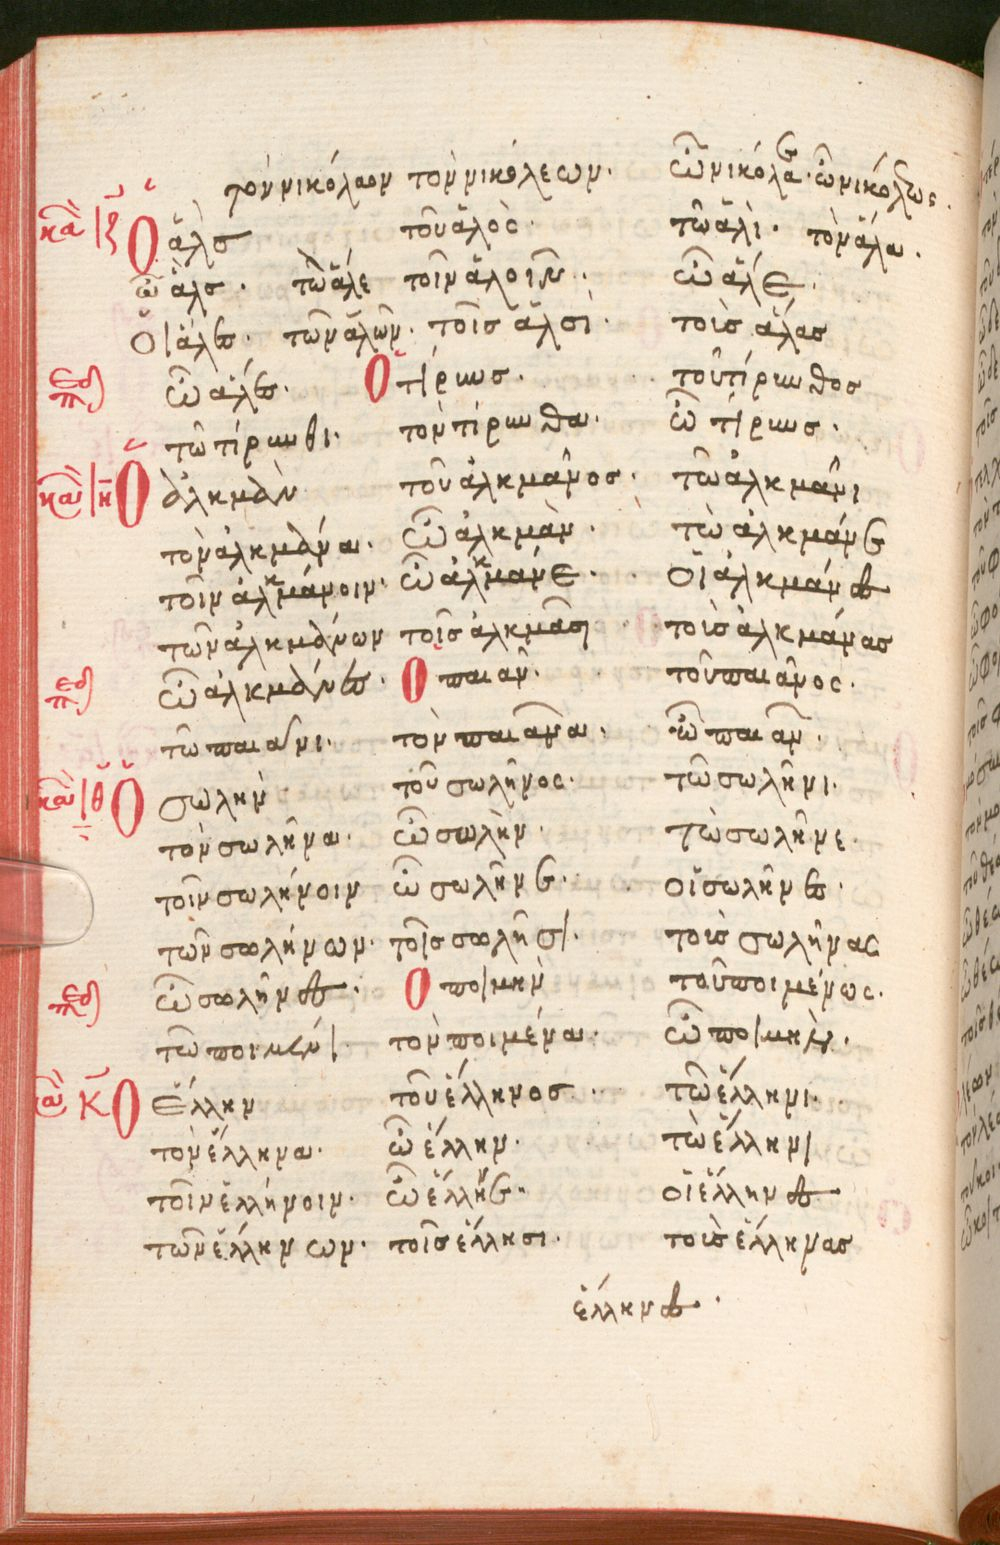 τὸν νικόλαον τὸν νικόλεων· ὦ νικόλαε· ὦ νικόλεως·
Ὁ ἅλς τοῦ ἁλὸς· τῷ ἁλὶ· τὸν ἅλα·
ὦ ἅλς· τὼ ἅλε τοῖν ἁλοῖν· ὦ ἅλε·
Οἱ ἅλες· τῶν ἁλῶν· τοῖς ἁλσὶ· τοὺς ἅλας
ὦ ἅλες· Ὁ τίρυνς· τοῦ τίρυνθος
τῷ τίρυνθι· τὸν τίρυνθα· ὦ τίρυνς·
κανὼν κη Ὁ ἀλκμὰν τοῦ ἀλκμᾶνος· τῷ ἀλκμᾶνι
τὸν ἀλκμάνα· ὦ ἀλκμὰν· τὼ ἀλκμάνε
τοῖν ἀλκμάνοιν· ὦ ἀλκμάνε· οἱ ἀλκμάνες
τῶν ἀλκμάνων τοῖς ἀλκμᾶσι τοὺς ἀλκμάνας
ὦ ἀλκμάνες· Ὁ παιαν· τοῦ παιᾶνος·
τῷ παιᾶνι· τὸν παιᾶνα· ὦ παιαν·
κανὼν θ Ὁ σωλὴν τοῦ σωλῆνος· τῷ σωλῆνι·
τὸν σωλῆνα· ὦ σωλὴν· τὼ σωλῆνε·
τοῖν σωλήνοιν ὦ σωλῆνε· οἱ σωλῆνες·
τῶν σωλήνων· τοῖς σωλῆσι· τοὺς σωλῆνας
ὦ σωλῆνες· Ὁ ποιμὴν τοῦ ποιμένως·
τῷ ποιμένι τὸν ποιμένα· ὦ ποιμὴν·
Κ Ὁ ἕλλην τοῦ ἕλληνος· τῷ ἕλληνι·
τὸν ἕλληνα· ὦ ἕλλην· τὼ ἕλληνι
τοῖν ἑλλήνοιν· ὦ ἕλληνε· οἱ ἕλληνες
τῶν ἑλλήνων· τοῖς ἕλλησι· τοὺς ἕλληνας
ἕλληνες·